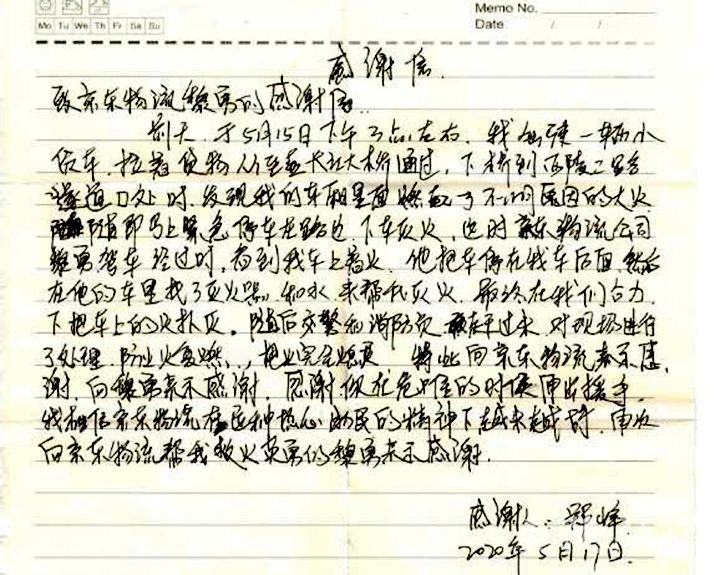 Memo No.
Mo Tu We Th Fr Sa Su
Date / /
感谢信.
致京东物流黎勇的感谢信.
前天.于5月15日下午3点左右.我驾驶一辆小
货车.拉着货物从至喜长江大桥通过,下桥到西陵二路
隧道口处时.发现我的车厢里面燃起了不明原因的大火
随即马上紧急停车在路边下车灭火,这时京东物流公司
黎勇驾车经过时,看到我车上着火.他把车停在我车后面,然后
在他的车里找了灭火器和水来帮我灭火.最终在我们合力
下把车上的火扑灭.随后交警和消防员赶过来对现场进行
了处理.防止火复燃,,把火完全熄灭 特此向京东物流表示感
谢.向黎勇表示感谢.感谢你在危险的时候伸出援手.
我相信京东物流在这种热心助民的精神下越来越好.再次
向京东物流帮我救火英勇的黎勇表示感谢.
感谢人:郑峰
2020年5月17日.